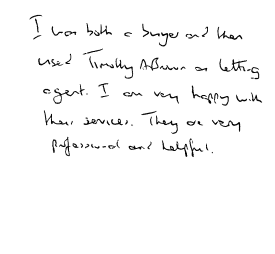 I was both a buyer and then
used Timothy A Brown as letting
agent. I am very happy with
their services. They are very
professional and helpful.